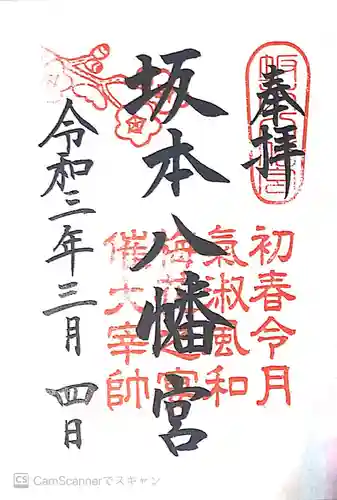 奉拝
坂本八幡宮
令和三年三月四日
初春令月
氣淑風和
梅花之宴
催大宰帥
CS CamScannerでスキャン